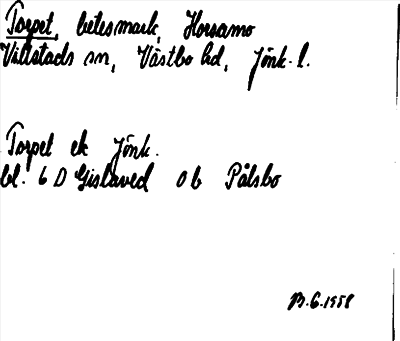 Torpet, betesmark, Horsamo
Villstads sn, Västbo hd, Jönk. l.
Torpet ek Jönk.
bl. 6 D Gislaved 0 b Pålsbo
B.G. 1958